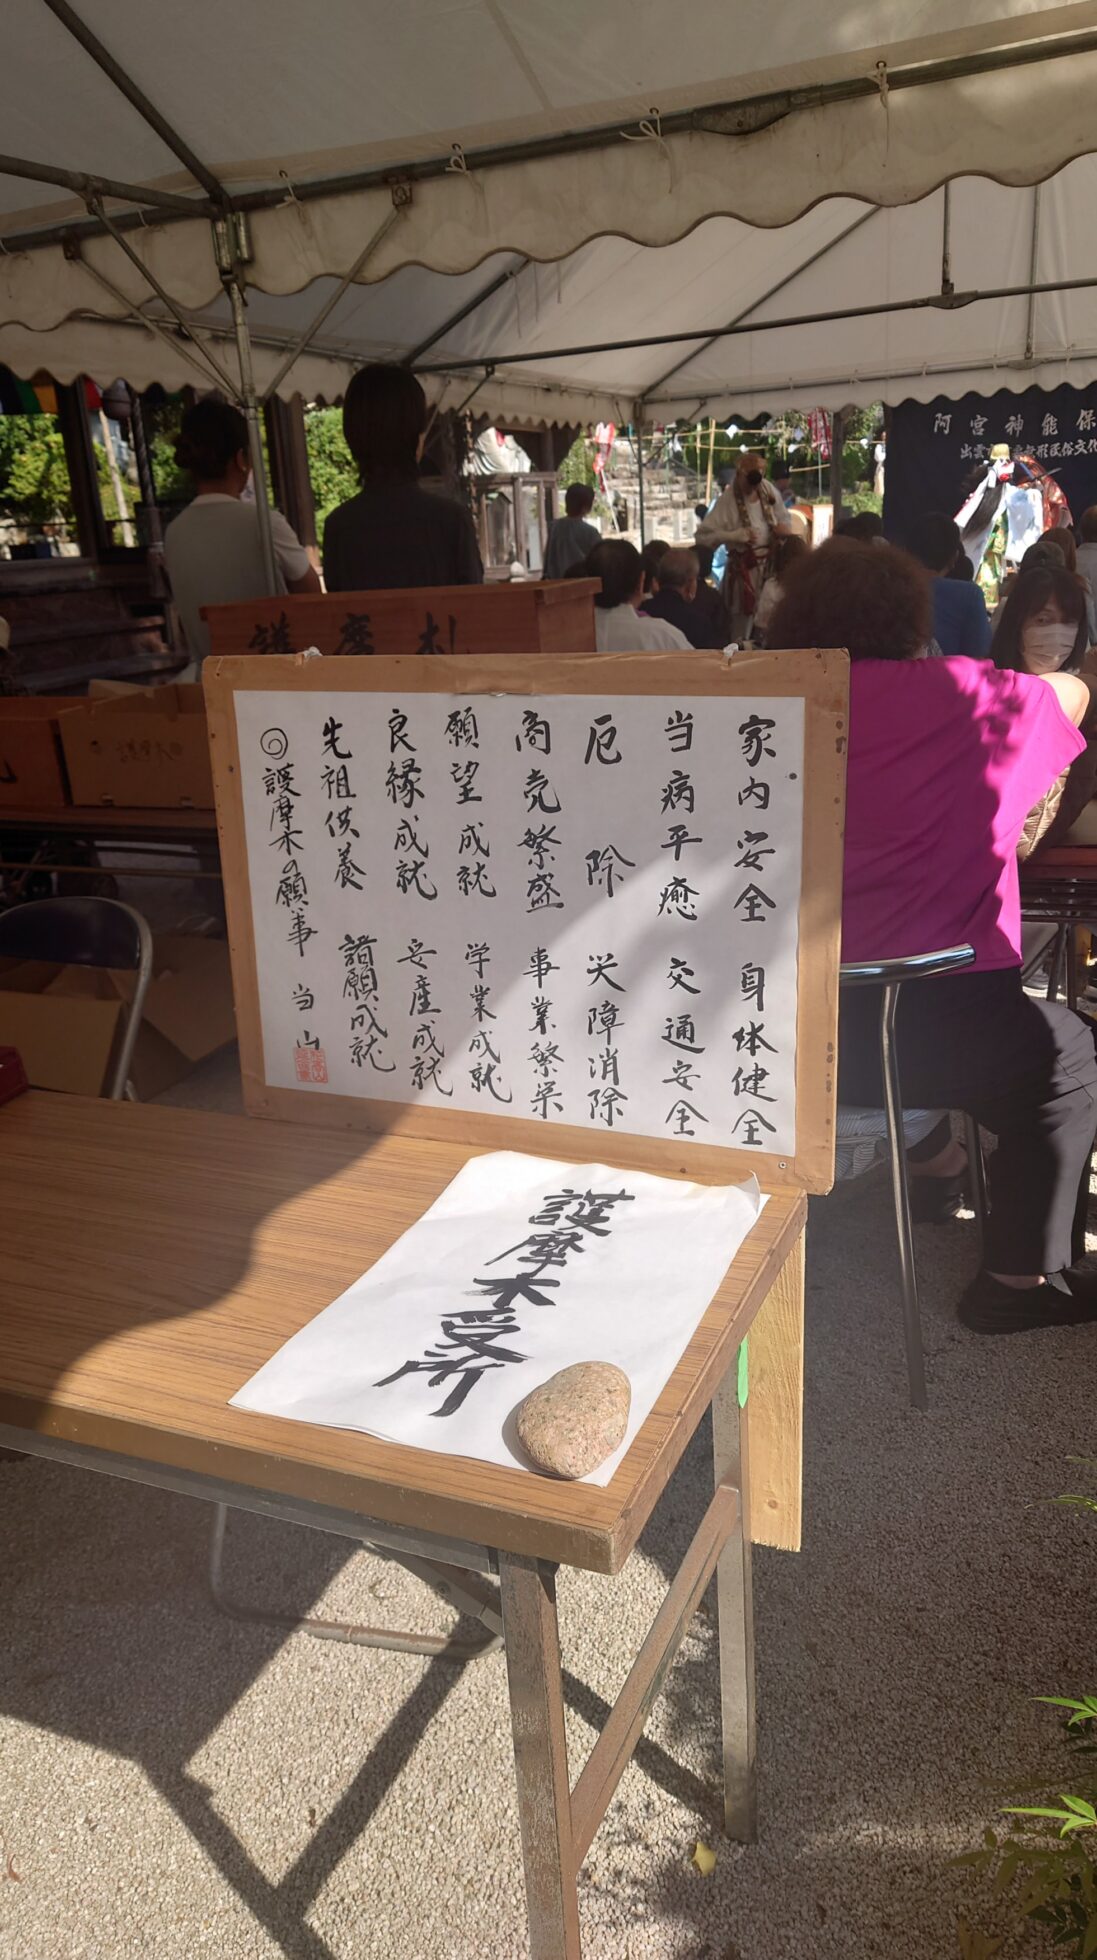 阿宮神能保
出雲
形民俗文化
護摩札
家内安全 身体健全
当病平癒 交通安全
厄除 災障消除
商売繁盛 事業繁栄
願望成就 学業成就
良縁成就 安産成就
先祖供養 諸願成就
護摩木の願事 当山
護摩木受所